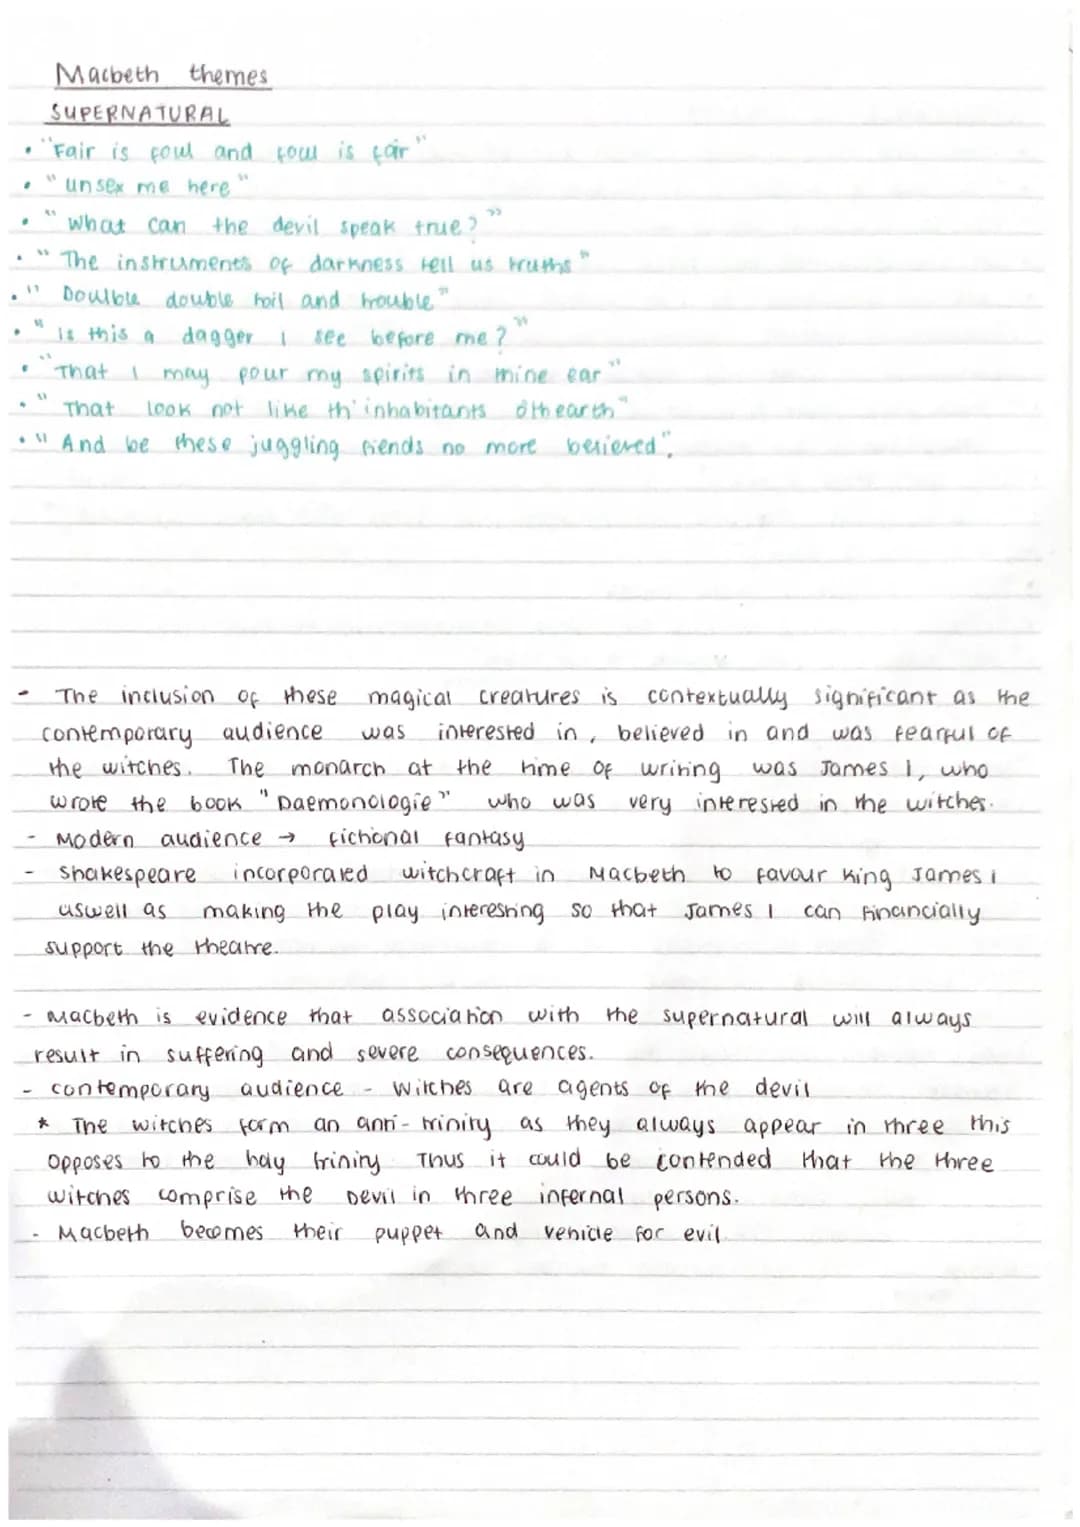 Macbeth themes
SUPERNATURAL
• "Fair is foul and foul is fair"
• "unsex me here"
• "What can the devil speak true?"
• "The instruments of darkness tell us truths"
• "Doulble double toil and trouble"
• "Is this a dagger I see before me?"
• "That I may pour my spirits in thine ear"
• "That look not like th'inhabitants o'th earth"
• "And be these juggling fiends no more believed".
- The inclusion of these magical creatures is contextually significant as the
contemporary audience was interested in, believed in and was fearful of
the witches. The monarch at the time of writing was James I, who
wrote the book "Daemonologie" who was very interested in the witches.
- Modern audience → fictional fantasy
- Shakespeare incorporated witchcraft in Macbeth to favour King James I
aswell as making the play interesting so that James I can financially
support the theatre.
- Macbeth is evidence that association with the supernatural will always
result in suffering and severe consequences.
- contemporary audience - witches are agents of the devil
* The witches form an anti-trinity as they always appear in three this
opposes to the holy trinity. Thus it could be contended that the three
witches comprise the Devil in three infernal persons.
- Macbeth becomes their puppet and vehicle for evil.